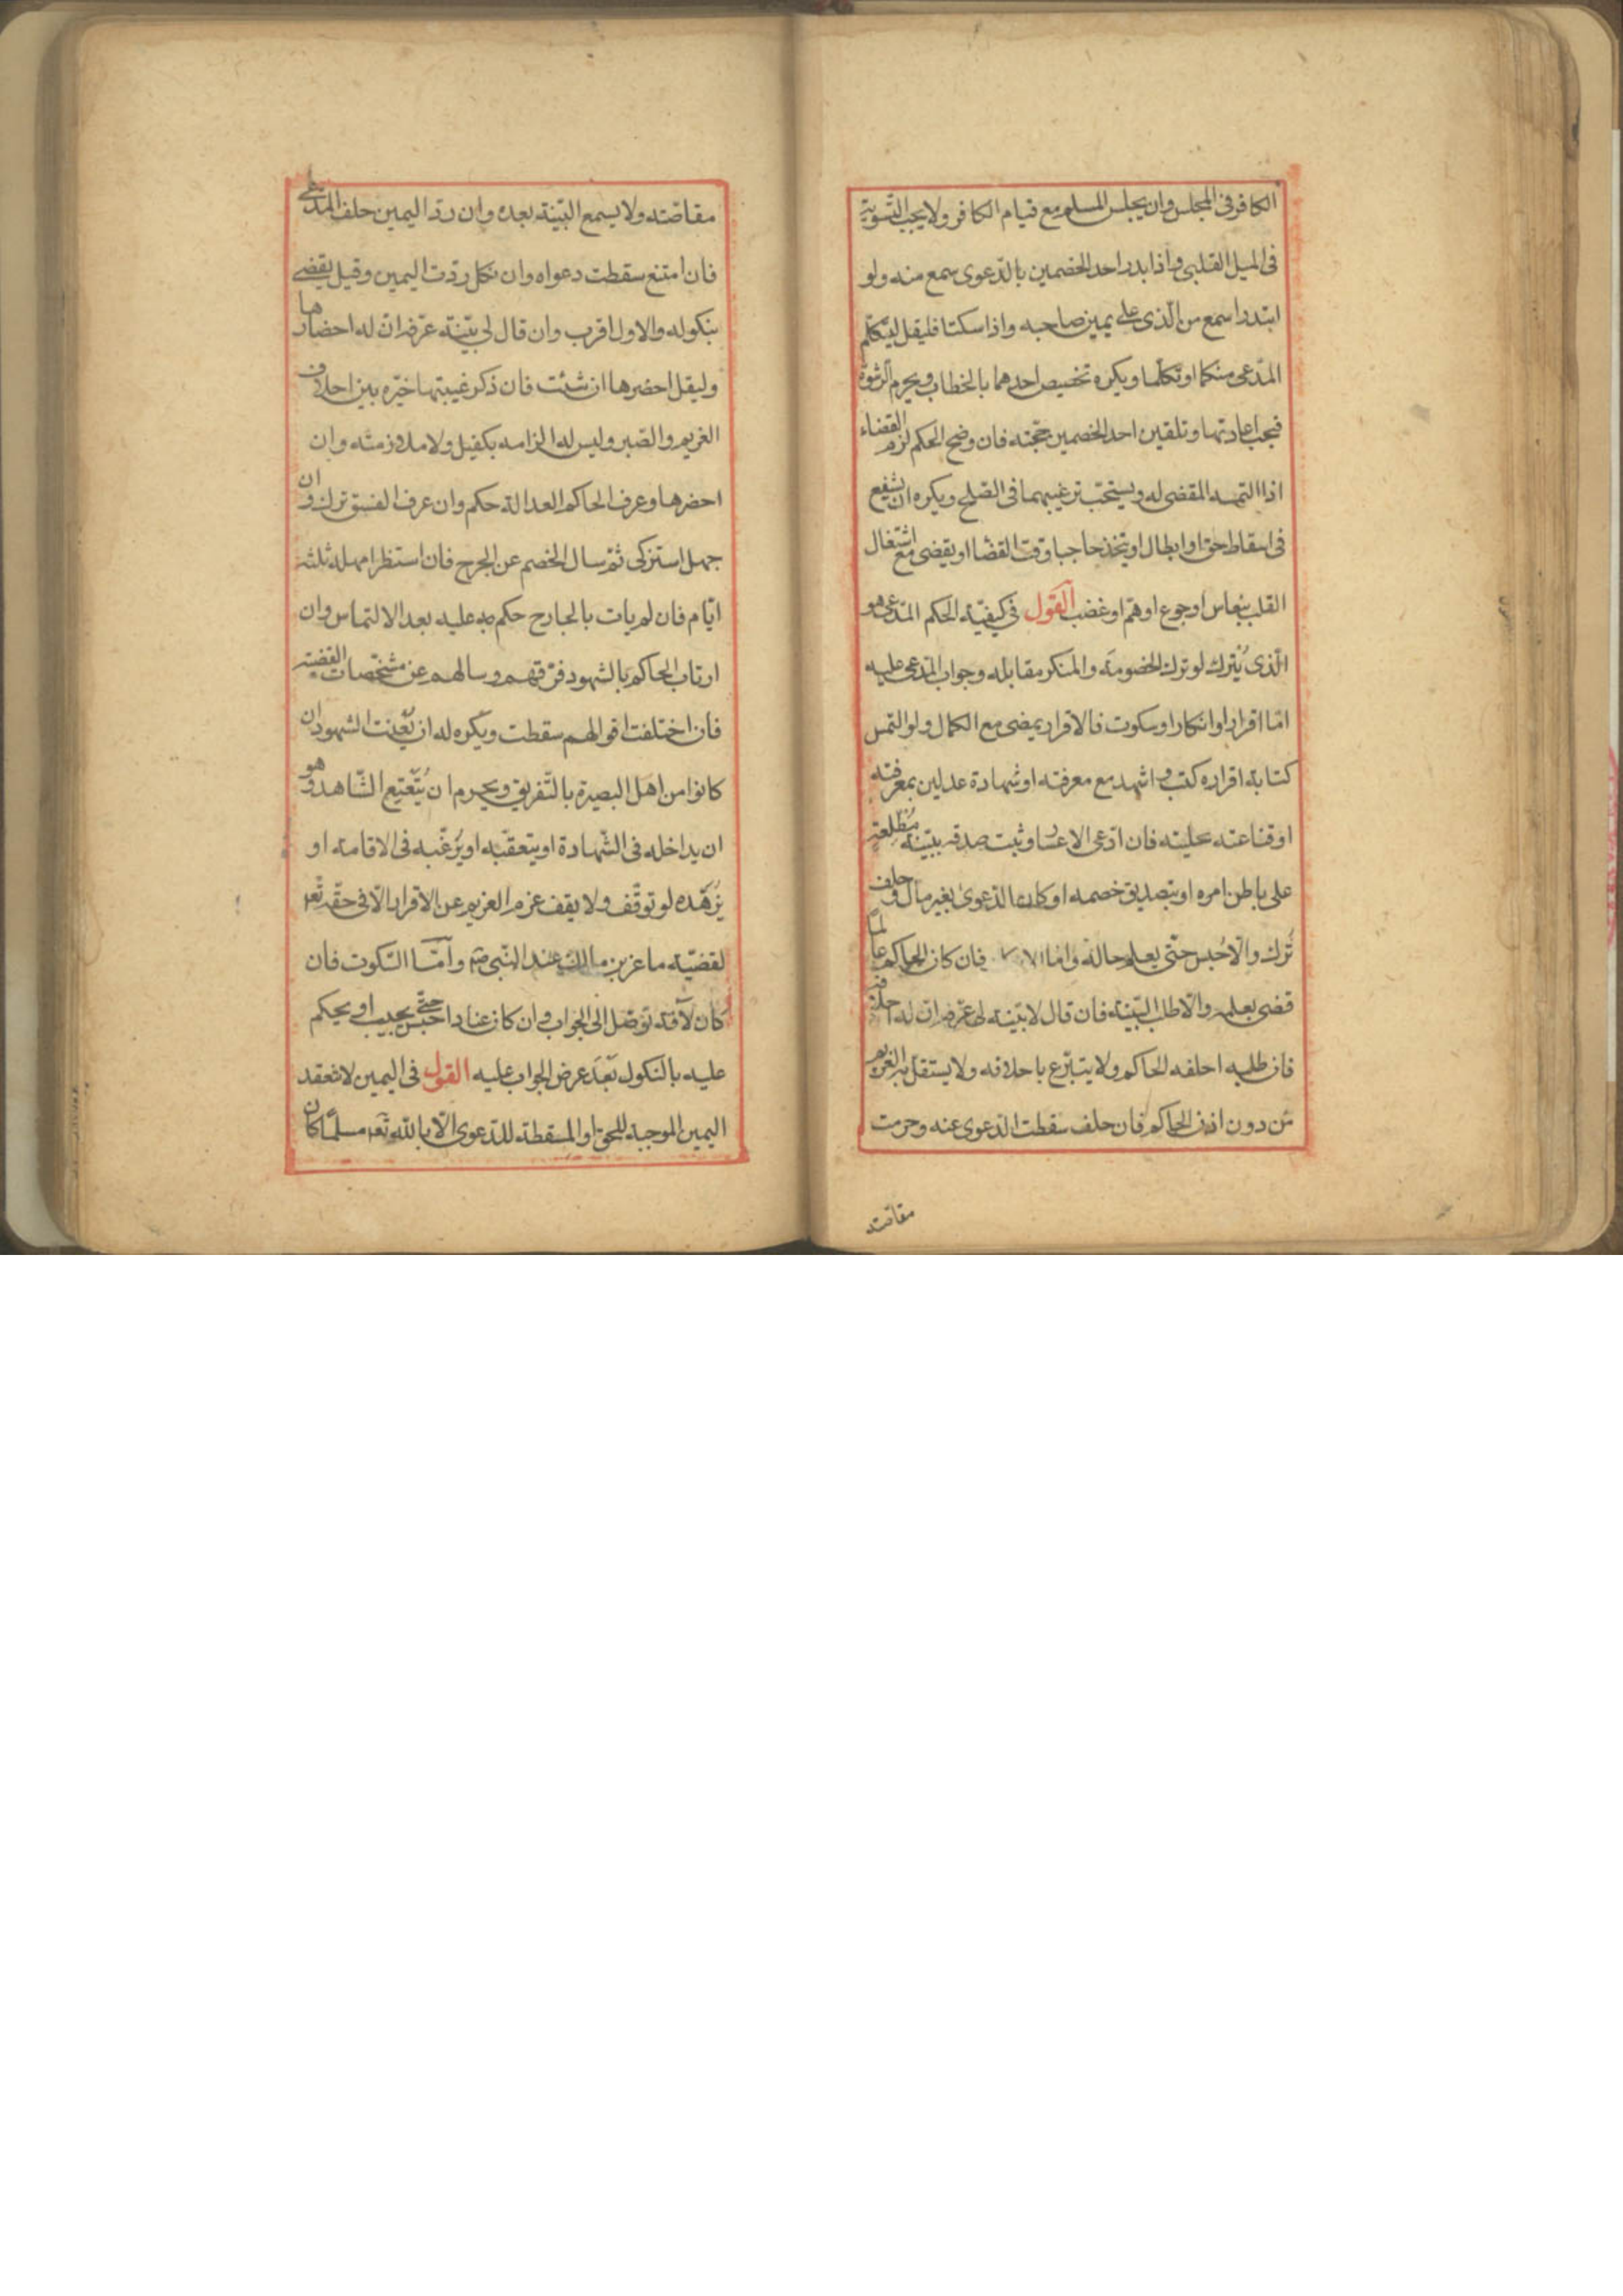 الكافر فى المجلس وان يجلس المسلم مع قيام الكافر ولا يجب التسوية
فى الميل القلبى واذا بدر احد الخصمين بالدعوى سمع منه ولو
ابتدرا سمع من الذى على يمين صاحبه واذا سكتا فليقل ليتكلم
المدعى منكما او تكلما ويكره تخصيص احدهما بالخطاب ويحرم الرشوة
فيجب اعادتها وتلقين احد الخصمين حجته فان وضح الحكم لزم القضاء
اذا التمسه المقضى له ويستحب ترغيبهما فى الصلح ويكره ان يشفع
فى اسقاط حق او ابطال او يتخذ حاجبا وقت القضا او يقضى مع اشتغال
القلب بنعاس او جوع او هم او غضب القول فى كيفية الحكم المدعى هو
الذى يُترك لو ترك الخصومة والمنكر مقابله وجواب المدعى عليه
اما اقرار او انكار او سكوت فالاقرار يمضى مع الكمال ولو التمس
كتابة اقراره كتب واشهد مع معرفته او شهادة عدلين بمعرفته
او قناعته بحليته فان ادعى الاعسار وثبت صدقه ببينة مُطّلعة
على باطن امره او بتصديق خصمه او كان الدعوى بغير مال وحلف
تُرك والا حُبس حتى يعلم حاله واما الانكار فان كان الحاكم عالما
قضى بعلمه والا طلب البينة فان قال لا بينة لى عرفه ان له احلافه
فان طلبه احلفه الحاكم ولا يتبرع باحلافه ولا يستقل به الغريم
من دون اذن الحاكم فان حلف سقطت الدعوى عنه وحرمت
مقاصته
مقاصته ولا يسمع البينة بعده وان رد اليمين حلف المدعى
فان امتنع سقطت دعواه وان نكل ردت اليمين وقيل يقضى
بنكوله والاول اقرب وان قال لى بينة عرفه ان له احضارها
وليقل احضرها ان شئت فان ذكر غيبتها خيره بين احلاف
الغريم والصبر وليس له الزامه بكفيل ولا ملازمته وان
احضرها وعرف الحاكم العدالة حكم وان عرف الفسق ترك وان
جهل استزكى ثم سال الخصم عن الجرح فان استنظر امهله ثلثة
ايام فان لم يات بالجارح حكم عليه بعد الالتماس وان
ارتاب الحاكم بالشهود فرقهم وسالهم عن مشخصات القضية
فان اختلفت اقوالهم سقطت ويكره له ان يعنت الشهود ان
كانوا من اهل البصيرة بالتفريق ويحرم ان يُتعتع الشاهد وهو
ان يداخله فى الشهادة او يتعقبه او يُرغّبه فى الاقامة او
يُزهّده لو توقف ولا يقف عزم الغريم عن الاقرار الا فى حقه تع
لقضية ماعز بن مالك عند النبى ص واما السكوت فان
كان لآفة توصل الى الجواب وان كان عنادا حبس حتى يجيب او يحكم
عليه بالنكول بعد عرض الجواب عليه القول فى اليمين لا تنعقد
اليمين الموجبة للحق او المسقطة للدعوى الا بالله تع مسلما كان